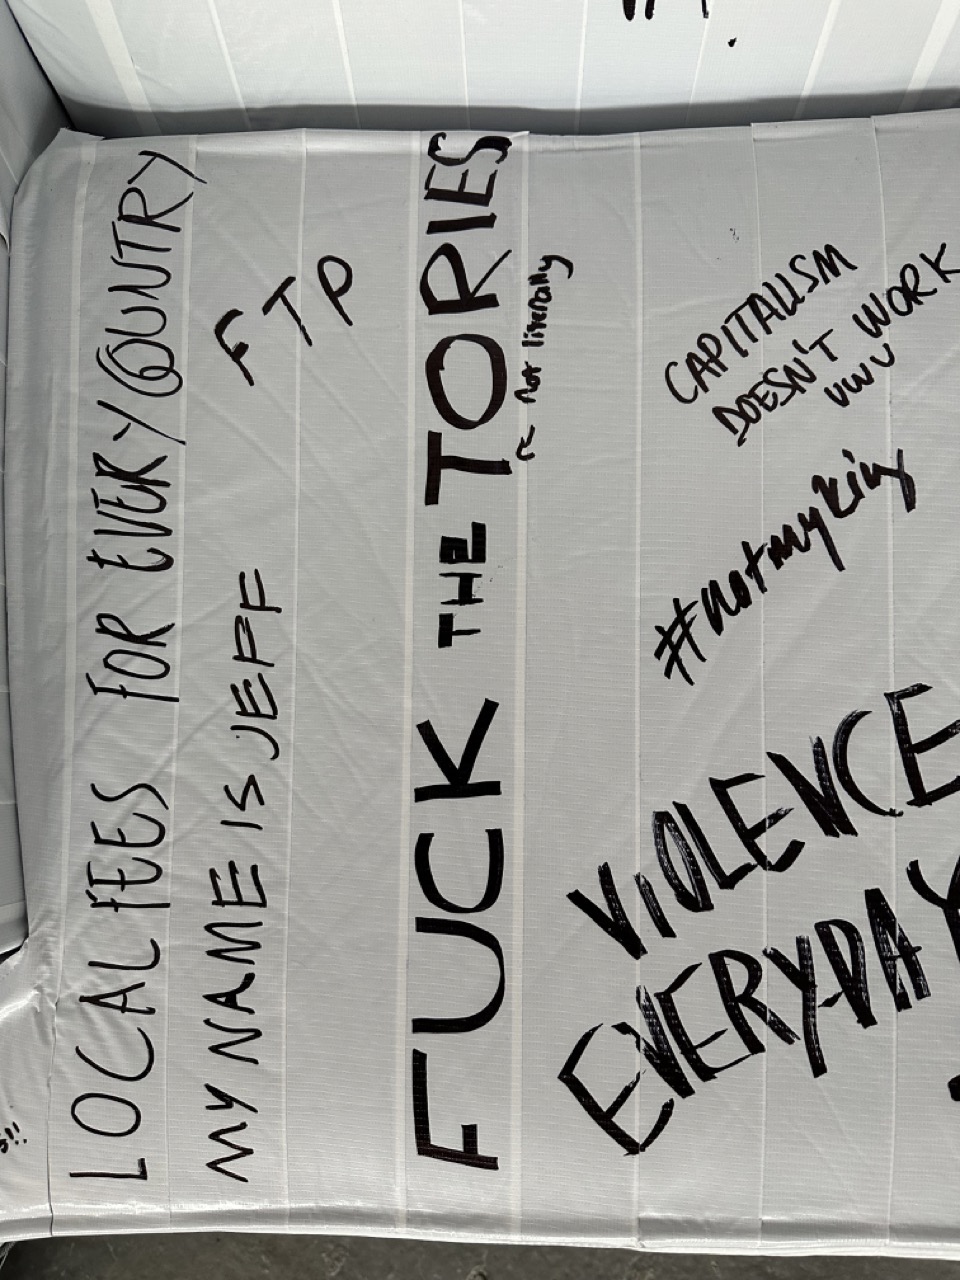 LOCAL FEES FOR EVERY COUNTRY
MY NAME IS JEFF
FTP
FUCK THE TORIES
← not literally
CAPITALISM
DOESN'T WORK
UWU
#notmyking
VIOLENCE
EVERYDAY